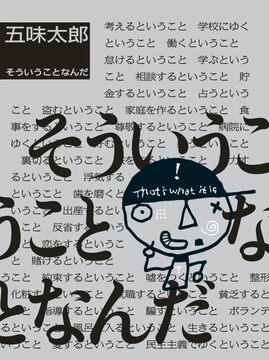 五味太郎
そういうことなんだ
考えるということ 学校にゆく
ということ 働くということ
怠けるということ 学ぶという
こと 相談するということ 貯
金するということ 占うという
こと 盗むということ 家庭を作るということ 食
事をするということ 尊敬するということ 病院に
ゆくということ
そういうこ
裏切るということ
浮気する
ということ 歯を磨く
!
That's what it is
うこと な
出産する
反省する
恋をするということ
賭けるということ
約束するということ 嘘をつくということ 整形
化粧する 就職する 貧乏する
となんだ
指導する 騙すということ ボランテ
風呂に入るということ 生きるということ
愛するということ 民主主義でゆくということ